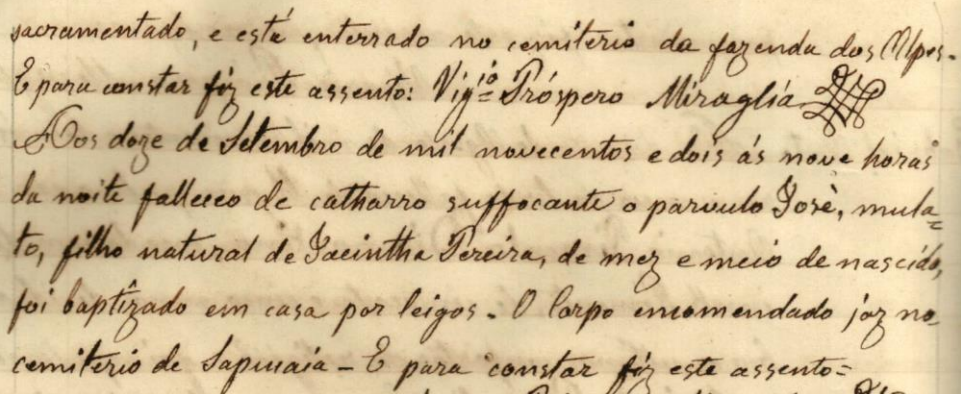 sacramentado, e está enterrado no cemiterio da fazenda dos Alpes.
E para constar fiz este assento: Vig.io Próspero Miraglia
Aos doze de Setembro de mil novecentos e dois ás nove horas
da noite falleceo de catharro suffocante o parvulo José, mula=
to, filho natural de Jacintha Pereira, de mez e meio de nascido,
foi baptizado em casa por leigos. O Corpo encomendado jaz no
cemiterio de Sapucaia - E para constar fiz este assento=